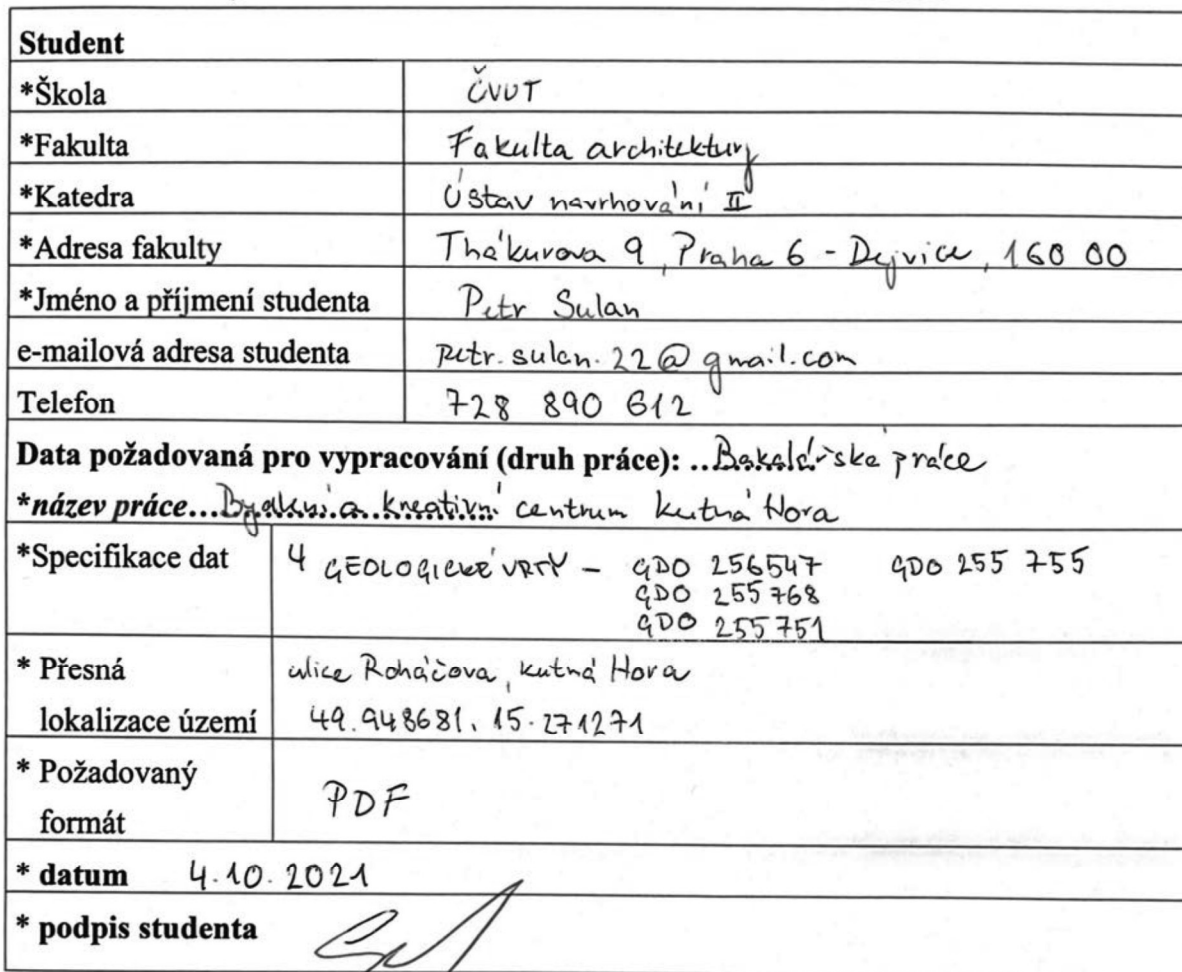 Student
*Škola ČVUT
*Fakulta Fakulta architektury
*Katedra Ústav navrhování II
*Adresa fakulty Thákurova 9, Praha 6 - Dejvice, 160 00
*Jméno a příjmení studenta Petr Sulan
e-mailová adresa studenta petr.sulan.22@gmail.com
Telefon 728 890 612
Data požadovaná pro vypracování (druh práce): ..Bakalářská práce
*název práce...Bydlení a kreativní centrum Kutná Hora
*Specifikace dat 4 GEOLOGICKÉ VRTY - GDO 256547 GDO 255 755
GDO 255768
GDO 255751
* Přesná ulice Roháčova, Kutná Hora
lokalizace území 49.948681, 15.271271
* Požadovaný
formát PDF
* datum 4.10.2021
* podpis studenta